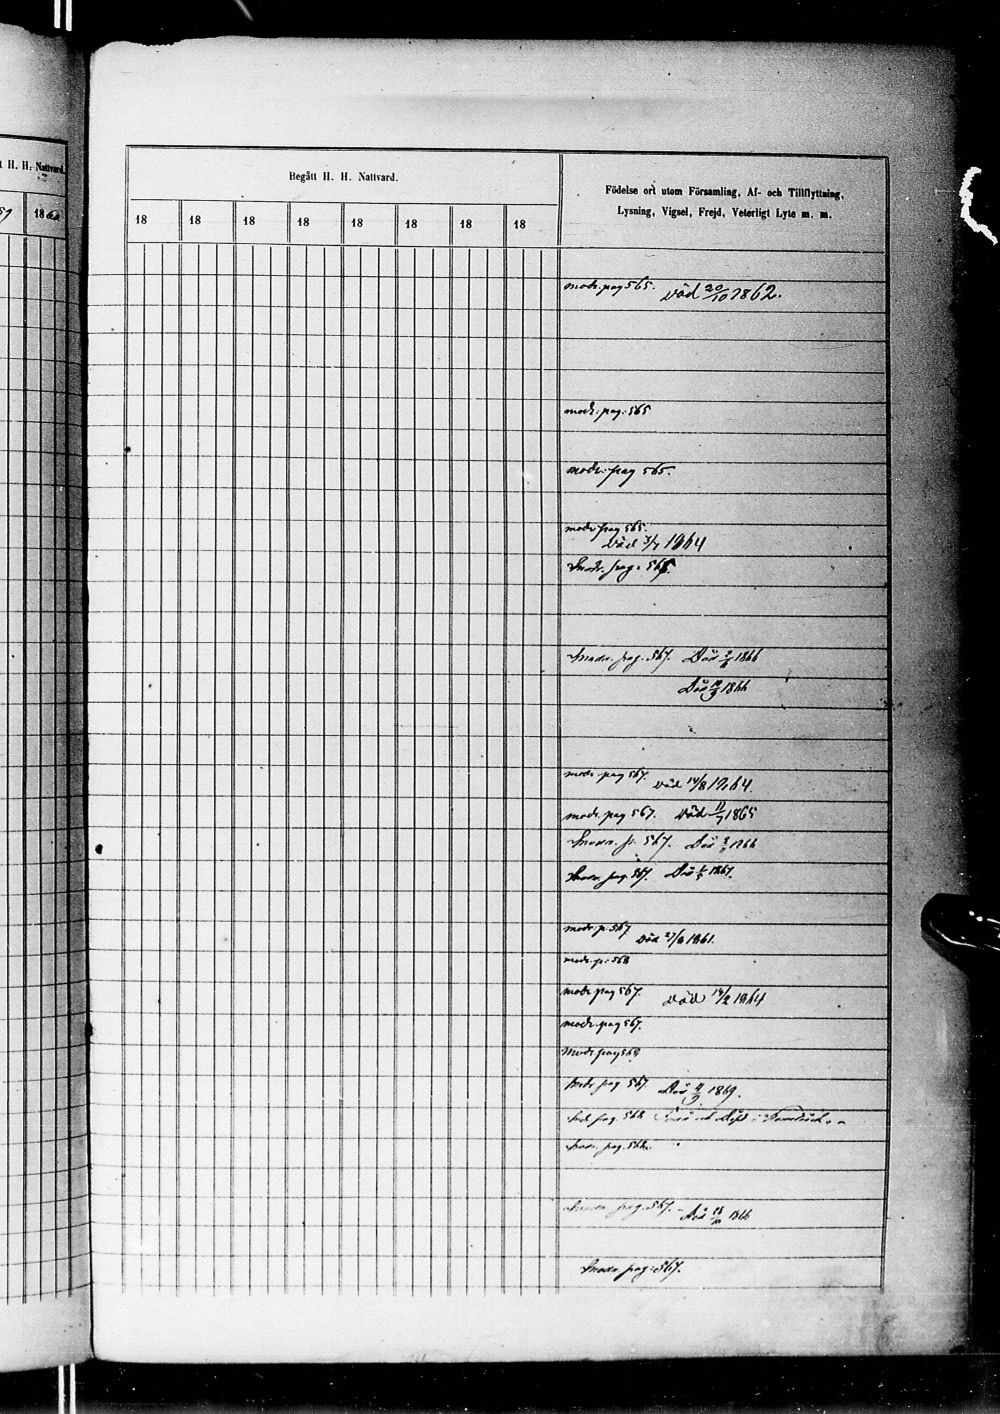 t H. H. Nattvard.
1862
Begått H. H. Nattvard.
Födelse ort utom Församling, Af- och Tillflyttning,
Lysning, Vigsel, Frejd, Veterligt Lyte m. m.
18 18 18 18 18 18 18 18
modr. pag 565. död 20/10 1862.
modr: pag: 565
modr: pag 565.
modr pag 565.
död 3/7 1864
modr. pag. 565
modr. pag. 567. Död 1866
Död 1866
modr. pag 567. död 14/8 1864.
modr. pag 567. död 11/7 1865
modr. p. 567. död 1866
modr. pag. 567. död 1867.
modr. p. 567 död 27/8 1861.
modr. p: 568
modr pag 567. död 14/2 1864
modr. pag 567.
modr pag 568
modr pag 567 död 1869.
pag. 568
modr. pag. 568.
modr. pag. 567. - död 1866
modr. pag: 567.